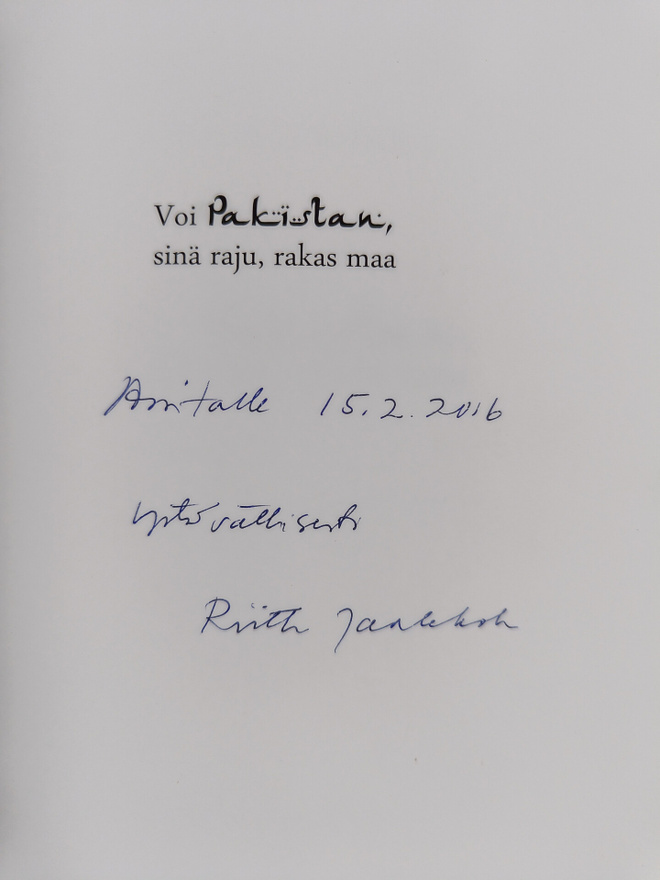 Voi Pakistan,
sinä raju, rakas maa
Anitalle 15.2.2016
ystävällisesti